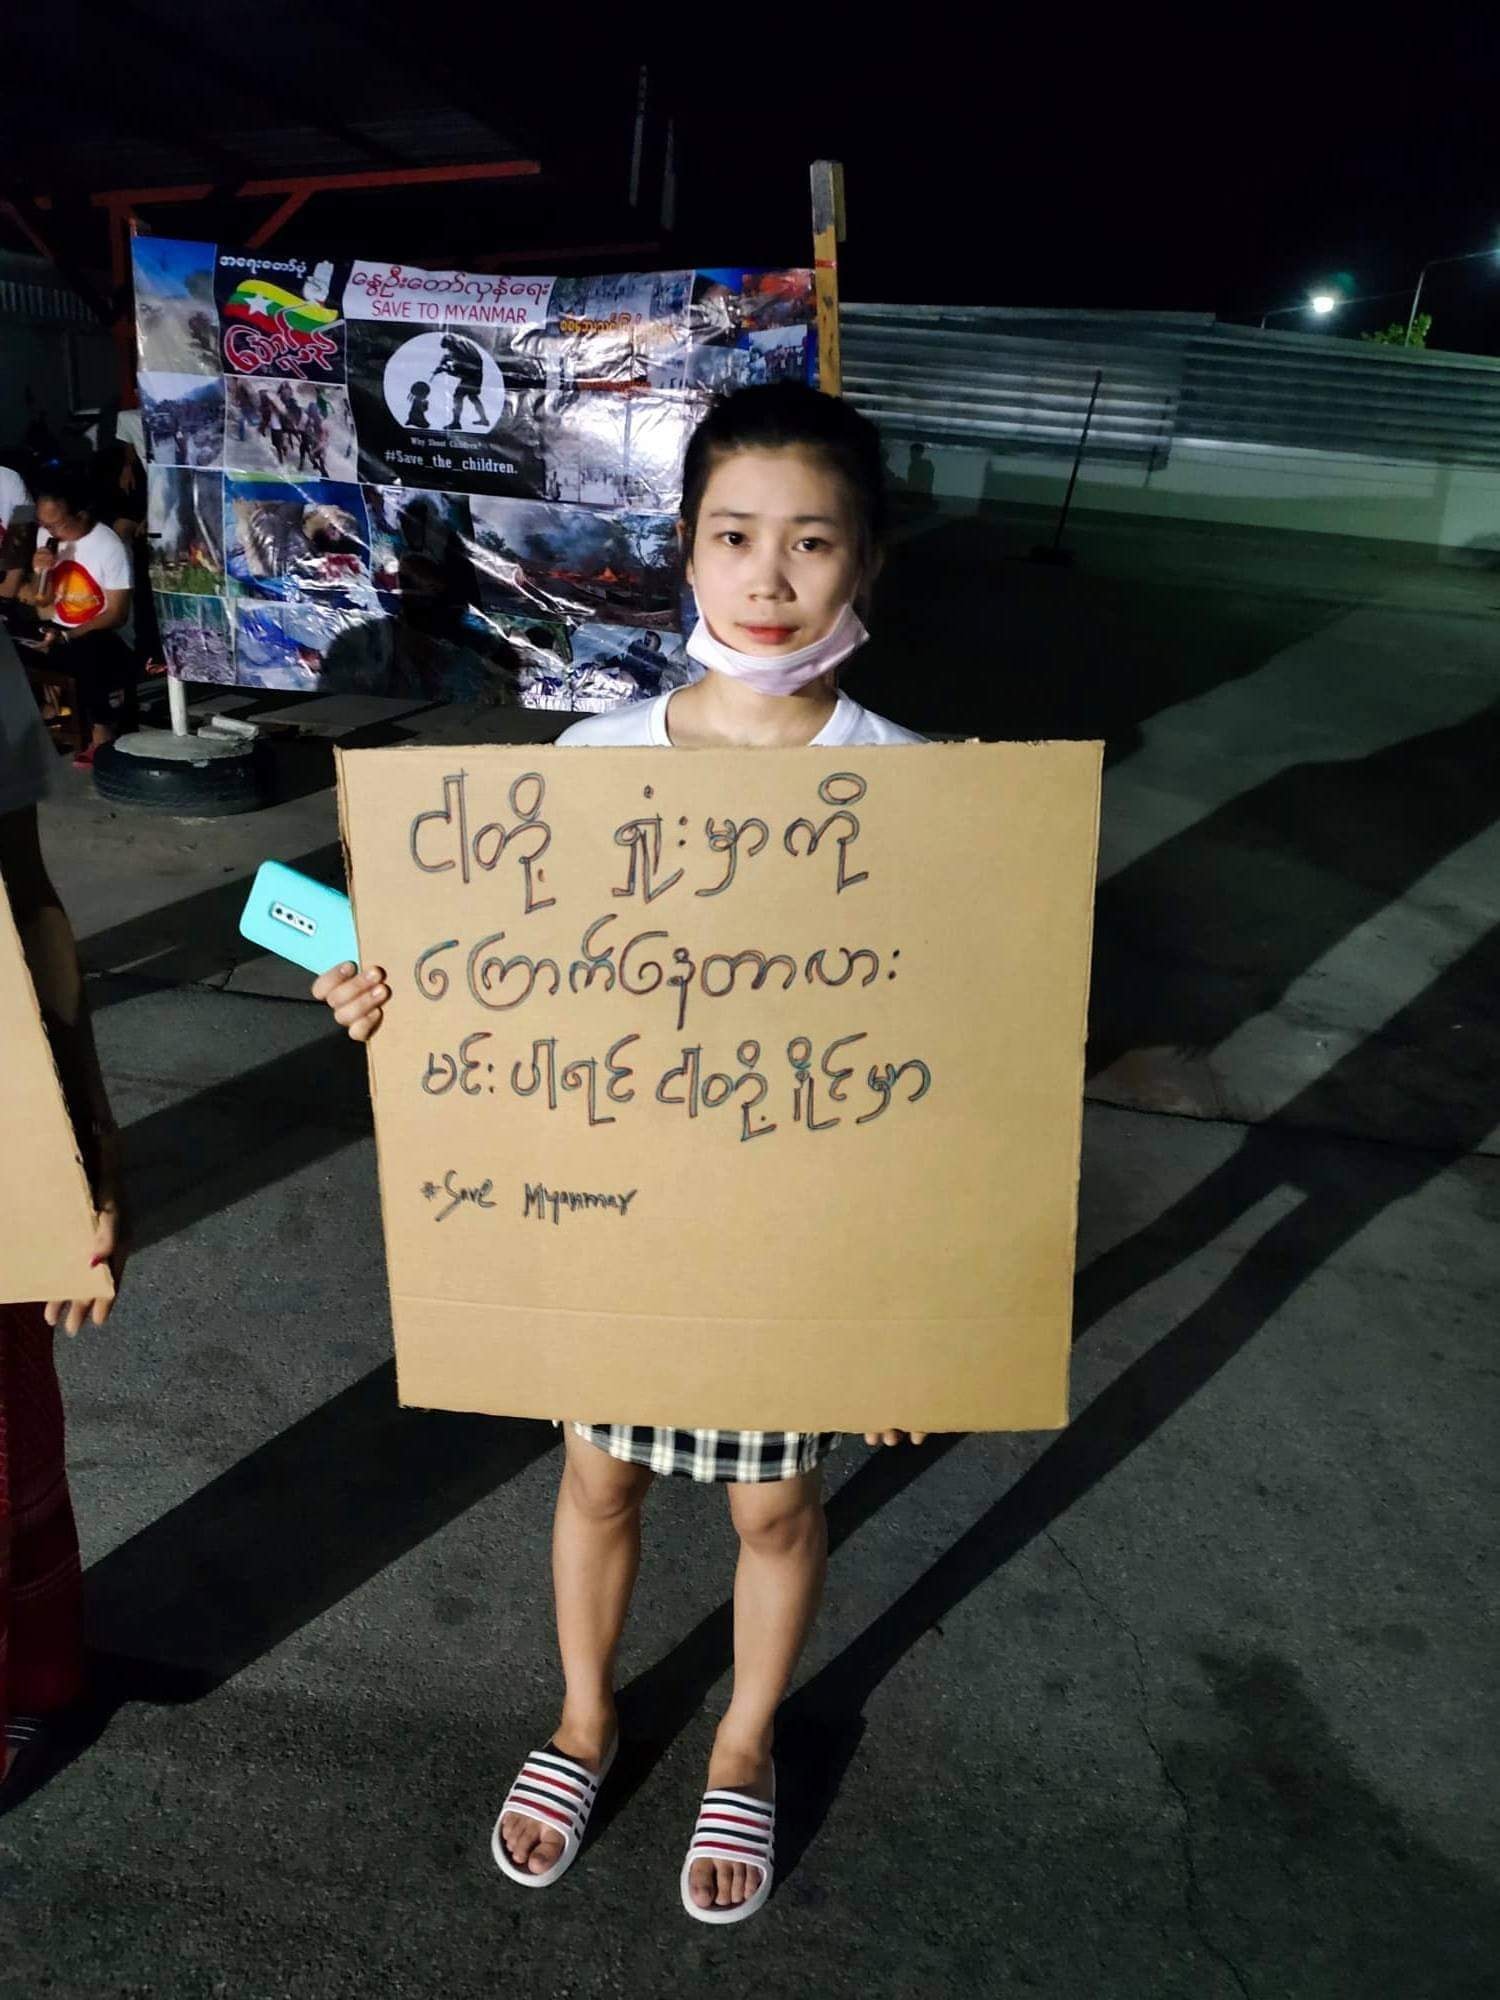 အရေးတော်ပုံ
နွေဦးတော်လှန်ရေး
SAVE TO MYANMAR
အောင်ရမည်
Why Shoot Children?
#Save_the_children.
ငါတို့ ရှုံးမှာကို
ကြောက်နေတာလား
မင်းပါရင် ငါတို့နိုင်မှာ
#Save Myanmar